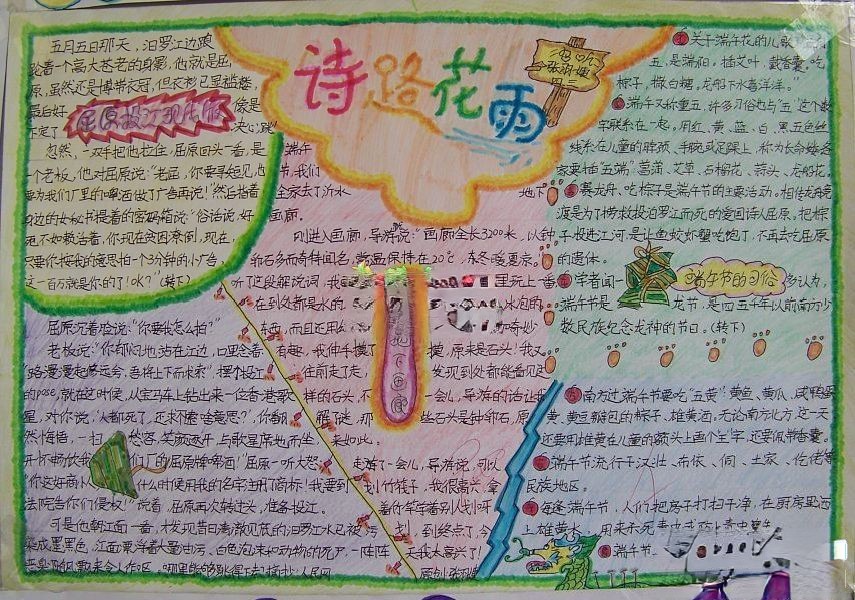 诗路花雨
五月五日那天，汨罗江边踱
跎着一个高大苍老的身影，他就是屈
原，虽然还是博带衣冠，但衣衫已显褴褛，
最后好
屈原投江现代版
决心，跳
忽然，一双手把他拉住，屈原回头一看，是
一个老板，他对屈原说："老屈，你要寻短见，也
要为我们厂里的啤酒做了广告再说！"然后指着
身边的女秘书提着的密码箱说："俗话说，好
死不如赖活着，你现在贫困潦倒，现在，
只要你按我的意思拍一个3分钟的小广告，
这一百万就是你的了！OK？"(转下)
屈原沉着脸说："你要我怎么拍？"
老板说："你郁闷地站在江边，口里念着
'路漫漫其修远兮，吾将上下而求索'。摆个投江
的pose，就在这时候，从宝马车上钻出来一位香港歌
星，对你说，'人都死了，还求索啥意思？'，你翻
然悔悟，一扫
愁容，笑颜逐开，与歌星席地而坐，
开怀畅饮我
们厂的屈原牌啤酒！"屈原一听大怒：
"你这好商人
什么时候用我的名字注册了商标！我要到
法院告你们侵权！"说着，屈原再次转过头，准备投江。
可是他朝江面一看，才发现昔日清澈见底的汨罗江水已被污
染成墨黑色，江面漂浮着大量油污、白色泡沫和动物的死尸，一阵阵
端午
节，我们
全家去了沂水
地下
画廊。
刚进入画廊，导游说："画廊全长3200米，以钟
卵石多而奇特闻名，常温保持在20℃，冬暖夏凉。
听了这段解说词，我
里玩上一番
在到处都是水的
水包的
东西，而且还用
奇妙
有趣，我伸手摸了
摸，原来是石头！我又
往前走了走，
发现到处都能看见这
样的石头，不
一会儿，导游的话让我
解了迷，那
些石头是钟卵石，原
来如此。
走游了一会儿，导游说，可以
划竹筏子，我很高兴，拿
着竹竿学着别人划呀
划，到终点了，今
天我太高兴了！
地下画廊
关于端午花的儿歌
五，是端阳，插艾叶，戴香囊。吃
粽子，撒白糖。龙船下水喜洋洋。"
端午又称重五，许多习俗也与"五"这个数
字联系在一起。用红、黄、蓝、白、黑五色丝
线系在儿童的脖颈、手腕或足踝上，称为长命缕，各
家要插"五端"菖蒲、艾草、石榴花、蒜头、龙船花。
赛龙舟、吃粽子是端午节的主要活动。相传龙舟竞
渡是为了捞救投汨罗江而死的爱国诗人屈原。把粽
子投进江河，是让鱼蛟虾蟹吃饱了，不再去吃屈原
的遗体。
端午节的习俗
学者闻一
多认为，
端午节是
龙节，是四五千年以前南方少
数民族纪念龙神的节日。(转下)
南方过端午节要吃"五黄"：黄鱼、黄瓜、咸鸭蛋
黄、黄豆瓣包的粽子、雄黄酒，无论南方北方，这一天
还要用雄黄在儿童的额头上画个"王"字，还要佩带香囊。
端午节流行于汉壮、布依、侗、土家、仡佬等
民族地区。
每逢端午节，人们把房子打扫干净，在厨房里洒
上雄黄水，
端午节